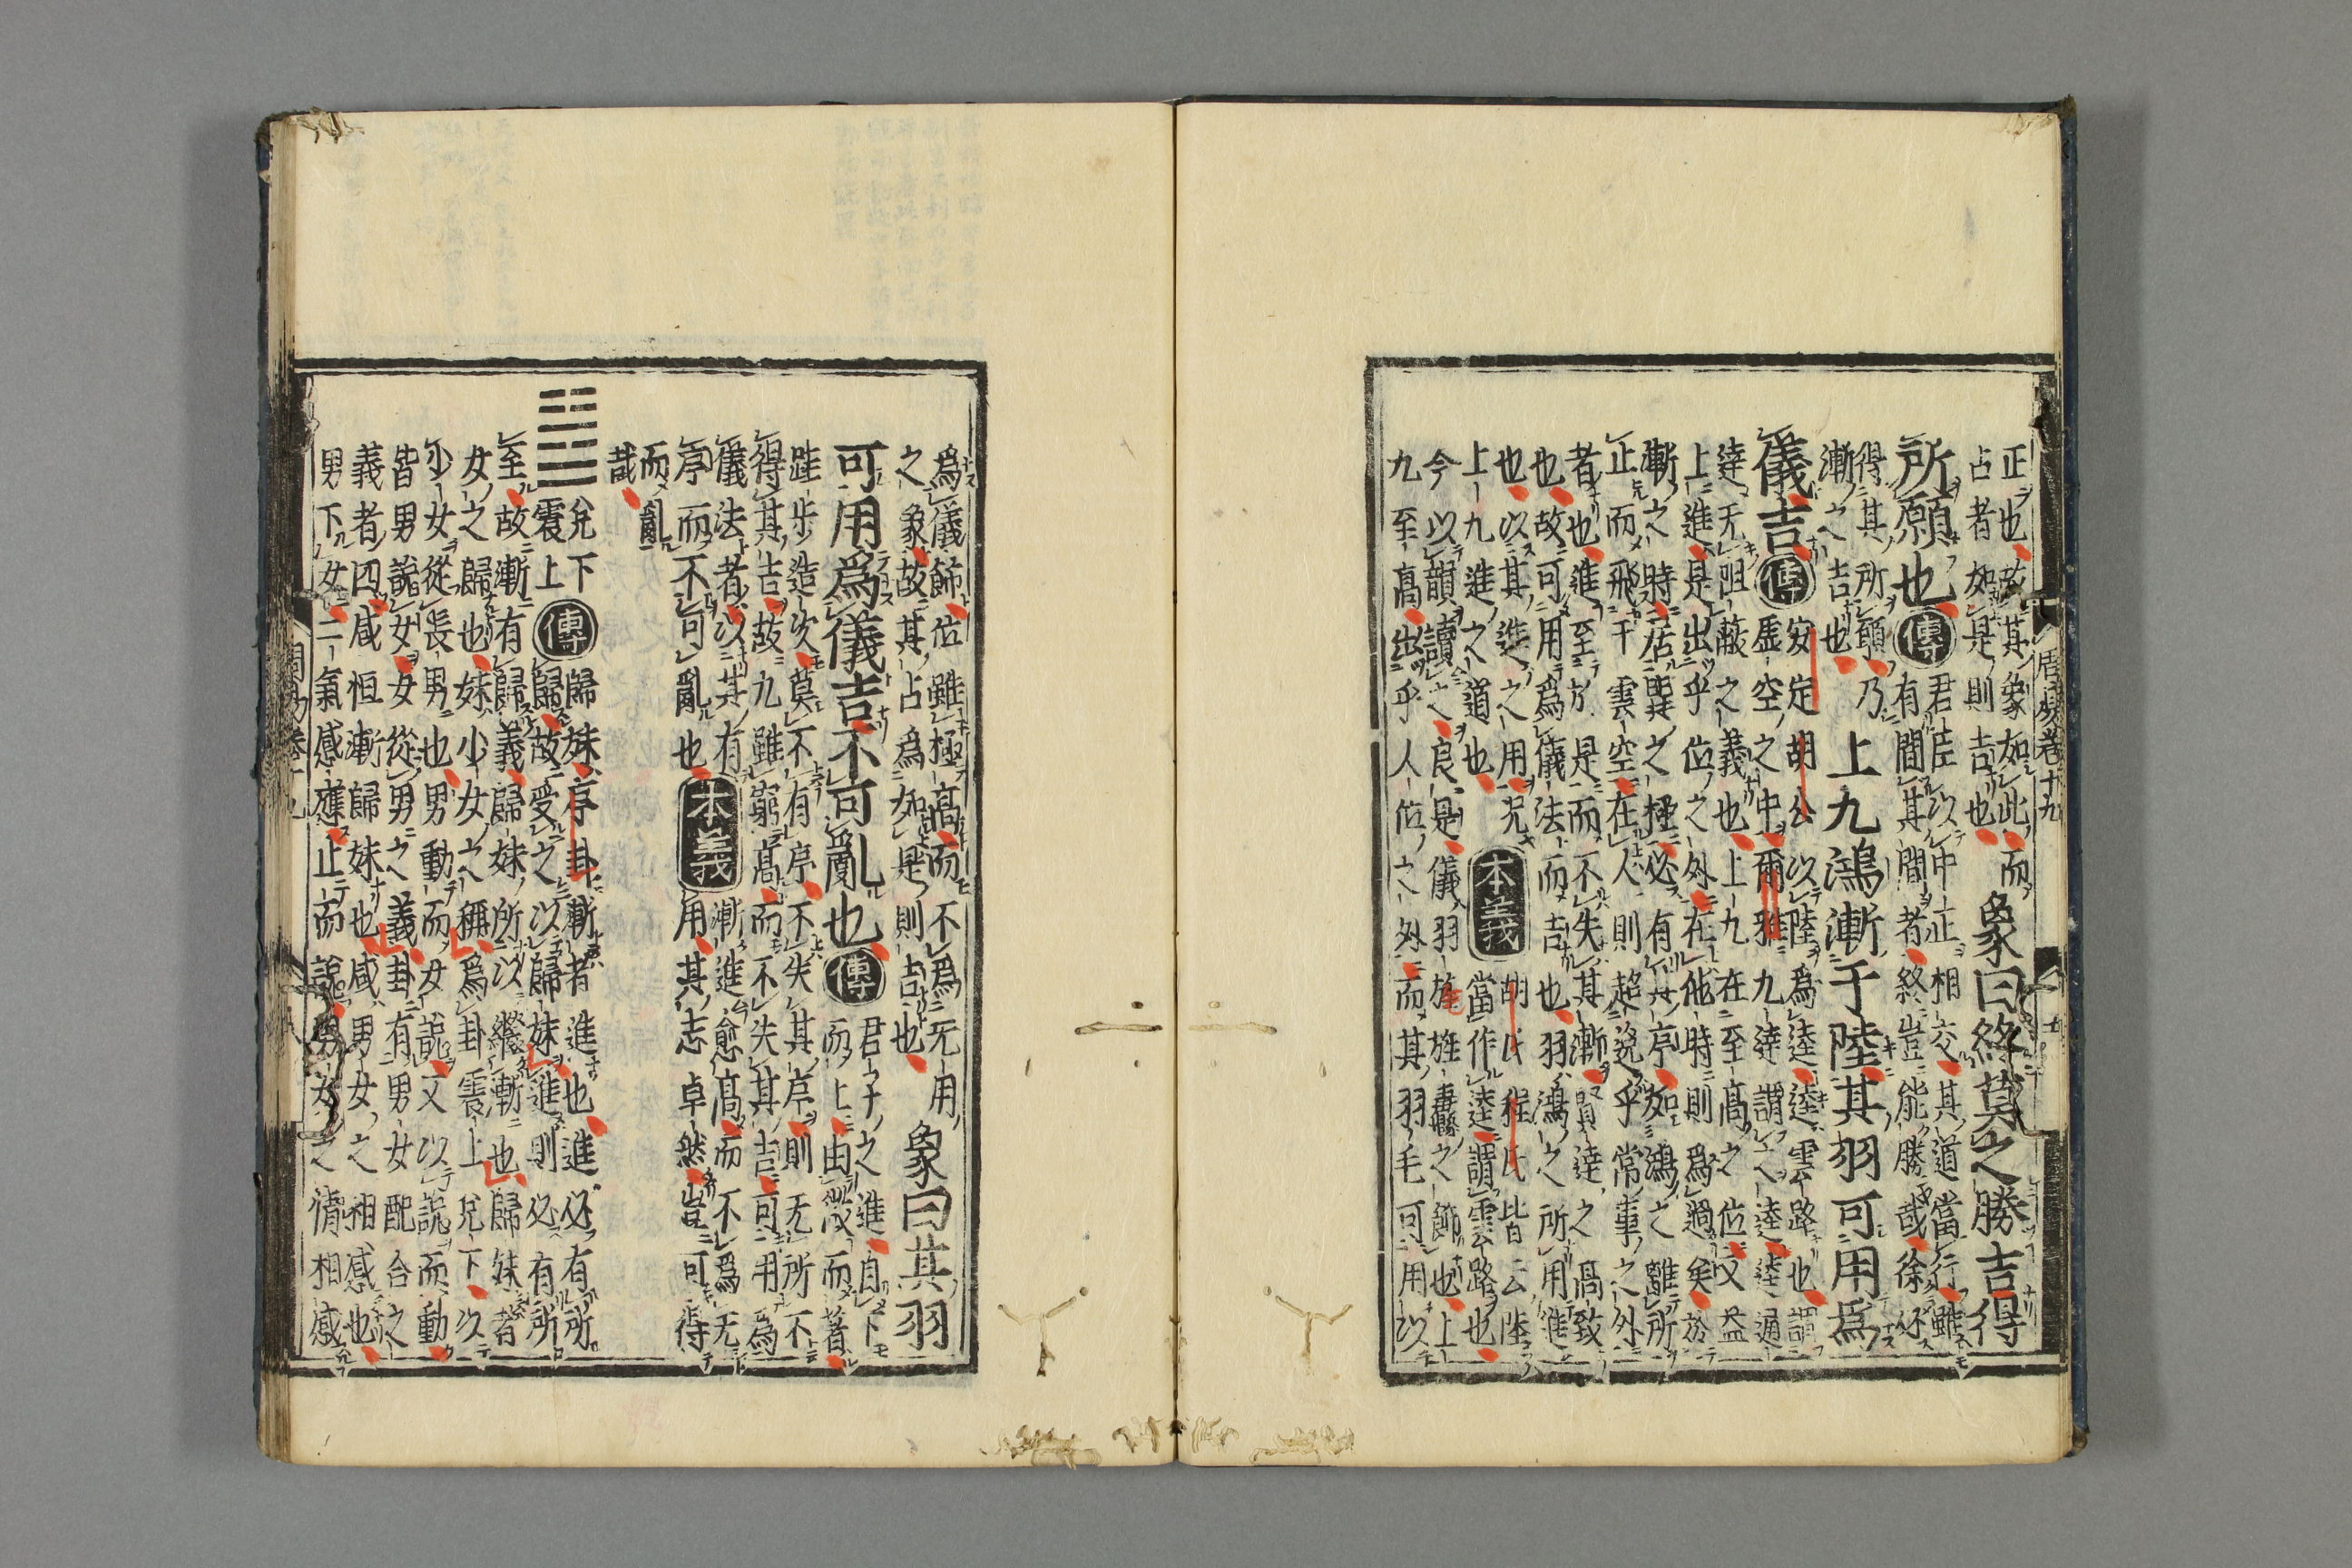 正也故其象如此而
占者如是則吉也
象曰終莫之勝吉得
所願也
傳
君臣以中正相交其道當行雖
有間其間者終豈能勝哉徐必
得其所願乃
漸之吉也
上九鴻漸于陸其羽可用爲
儀吉
傳
安定胡公以陸爲逵逵雲路也謂
虛空之中爾雅九達謂之逵逵通
達无阻蔽之義也上九在至高之位又益
上進是出乎位之外在他時則爲過矣於
漸之時居巽之極必有其序如鴻之離所
止而飛于雲空在人則超逸乎常事之外
者也進至於是而不失其漸賢達之高致
也故可用爲儀法而吉也羽鴻之所用進
也以其進之用況
上九進之道也
本義
胡氏程氏皆云陸
當作逵謂雲路也
今以韻讀之良是儀羽旄旌纛之飾也上
九至高出乎人位之外而其羽毛可用以
周易卷十九
爲儀飾位雖極高而不爲无用
之象故其占爲如是則吉也
象曰其羽
可用爲儀吉不可亂也
傳
君子之進自下
而上由微而著
跬步造次莫不有序不失其序則无所不
得其吉故九雖窮高而不失其吉可用爲
儀法者以其有
序而不可亂也
本義
漸進愈高而不爲无
用其志卓然豈可得
而亂
哉
兌下
震上
傳
歸妹序卦漸者進也進必有所
歸故受之以歸妹進則必有所
至故漸有歸義歸妹所以繼漸也歸妹者
女之歸也妹少女之稱爲卦震上兌下以
少女從長男也男動而女說又以說而動
皆男說女女從男之義卦有男女配合之
義者四咸恒漸歸妹也咸男女之相感也
男下女二氣感應止而說男女之情相感